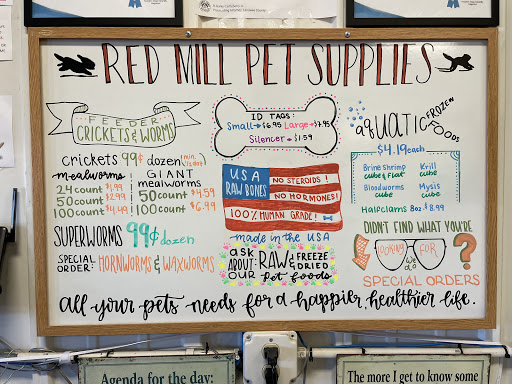 RED MILL PET SUPPLIES
FEEDER
CRICKETS & WORMS
crickets 99¢ dozen
mealworms
24 count $1.99
50 count $2.99
100 count $4.49
GIANT
mealworms
50 count $4.59
100 count $6.99
SUPERWORMS 99¢ dozen
SPECIAL
ORDER: HORNWORMS & WAXWORMS
ID TAGS:
Small → $6.95 Large → $7.95
Silencer → $1.59
USA
RAW BONES
NO STEROIDS!
NO HORMONES!
100% HUMAN GRADE!
made in the USA
ASK
ABOUT
OUR
RAW & FREEZE
DRIED
pet foods
aquatic FROZEN
FOODS
$4.19 each
Brine Shrimp
cube & flat
Krill
cube
Bloodworms
cube
Mysis
cube
Halfclams 8oz $8.99
DIDN'T FIND WHAT YOU'RE
LOOKING FOR ?
We do
SPECIAL ORDERS
all your pets needs for a happier, healthier life.
Agenda for the day:
The more I get to know some